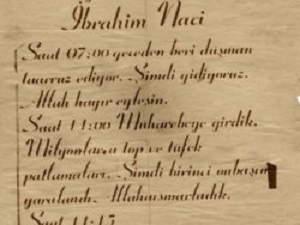 İbrahim Naci
Saat 07:00 geceden beri düşman
taarruz ediyor. - Şimdi gidiyoruz.
Allah hayır eylesin.
Saat 11:00 Muharebeye girdik.
Milyonlarca top ve tüfek
patlamaları. - Şimdi birinci onbaşım
yaralandı. Allahaısmarladık.
Saat 11:15